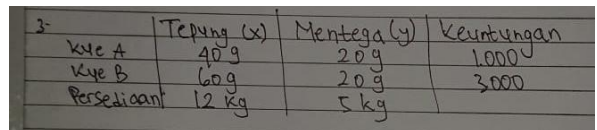 3- Tepung (x) Mentega (y) Keuntungan
Kue A 40g 20g 1.000
Kue B 60g 20g 3.000
Persediaan 12 kg 5 kg